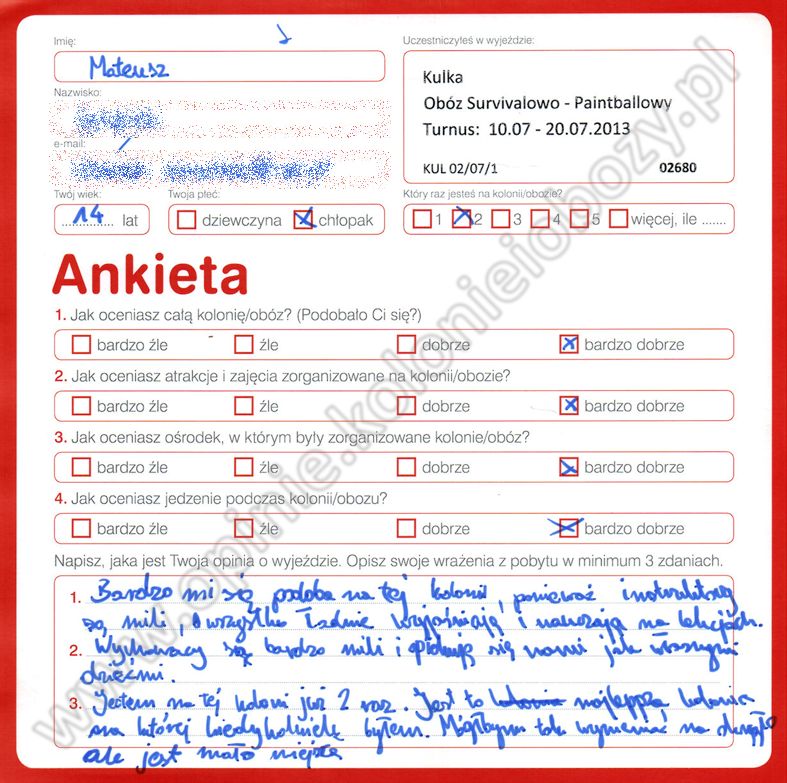 Imię:
Uczestniczyłeś w wyjeździe:
Mateusz
Kulka
Obóz Survivalowo - Paintballowy
Turnus: 10.07 - 20.07.2013
KUL 02/07/1 02680
Nazwisko:
e-mail:
Twój wiek:
Twoja płeć:
Który raz jesteś na kolonii/obozie?
14 lat
dziewczyna chłopak
1 2 3 4 5 więcej, ile .......
Ankieta
1. Jak oceniasz całą kolonię/obóz? (Podobało Ci się?)
bardzo źle źle dobrze bardzo dobrze
2. Jak oceniasz atrakcje i zajęcia zorganizowane na kolonii/obozie?
bardzo źle źle dobrze bardzo dobrze
3. Jak oceniasz ośrodek, w którym były zorganizowane kolonie/obóz?
bardzo źle źle dobrze bardzo dobrze
4. Jak oceniasz jedzenie podczas kolonii/obozu?
bardzo źle źle dobrze bardzo dobrze
Napisz, jaka jest Twoja opinia o wyjeździe. Opisz swoje wrażenia z pobytu w minimum 3 zdaniach.
1. Bardzo mi się podoba na tej kolonii, ponieważ
są mili, wszystko ładnie wyjaśniają i nauczają na lekcjach.
2. Wychowacy są bardzo mili i opiekują się nami jak własnymi
dziećmi.
3. Jestem na tej koloni już 2 raz. Jest to najlepsza kolonia
na której kiedykolwiek byłem. Mógłbym tak wymieniać na
ale jest mało miejsca
www.opinie.kolonieiobozy.pl